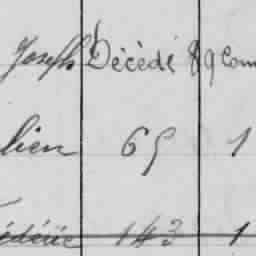 Joseph Décédé 89 com
lien 65 1
édéric 143 1